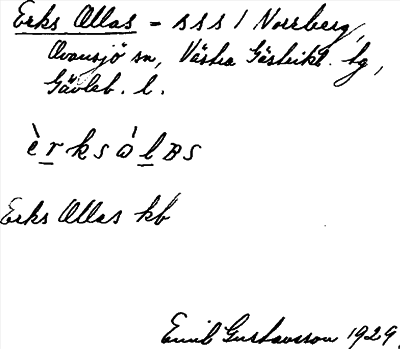 Erks Ollas = sss 1 Norrberg,
Ovansjö sn, Västra Gästrikl. tg,
Gävleb. l.
èrksòlBs
Erks Ollas kb
Emil Gustavsson 1929.